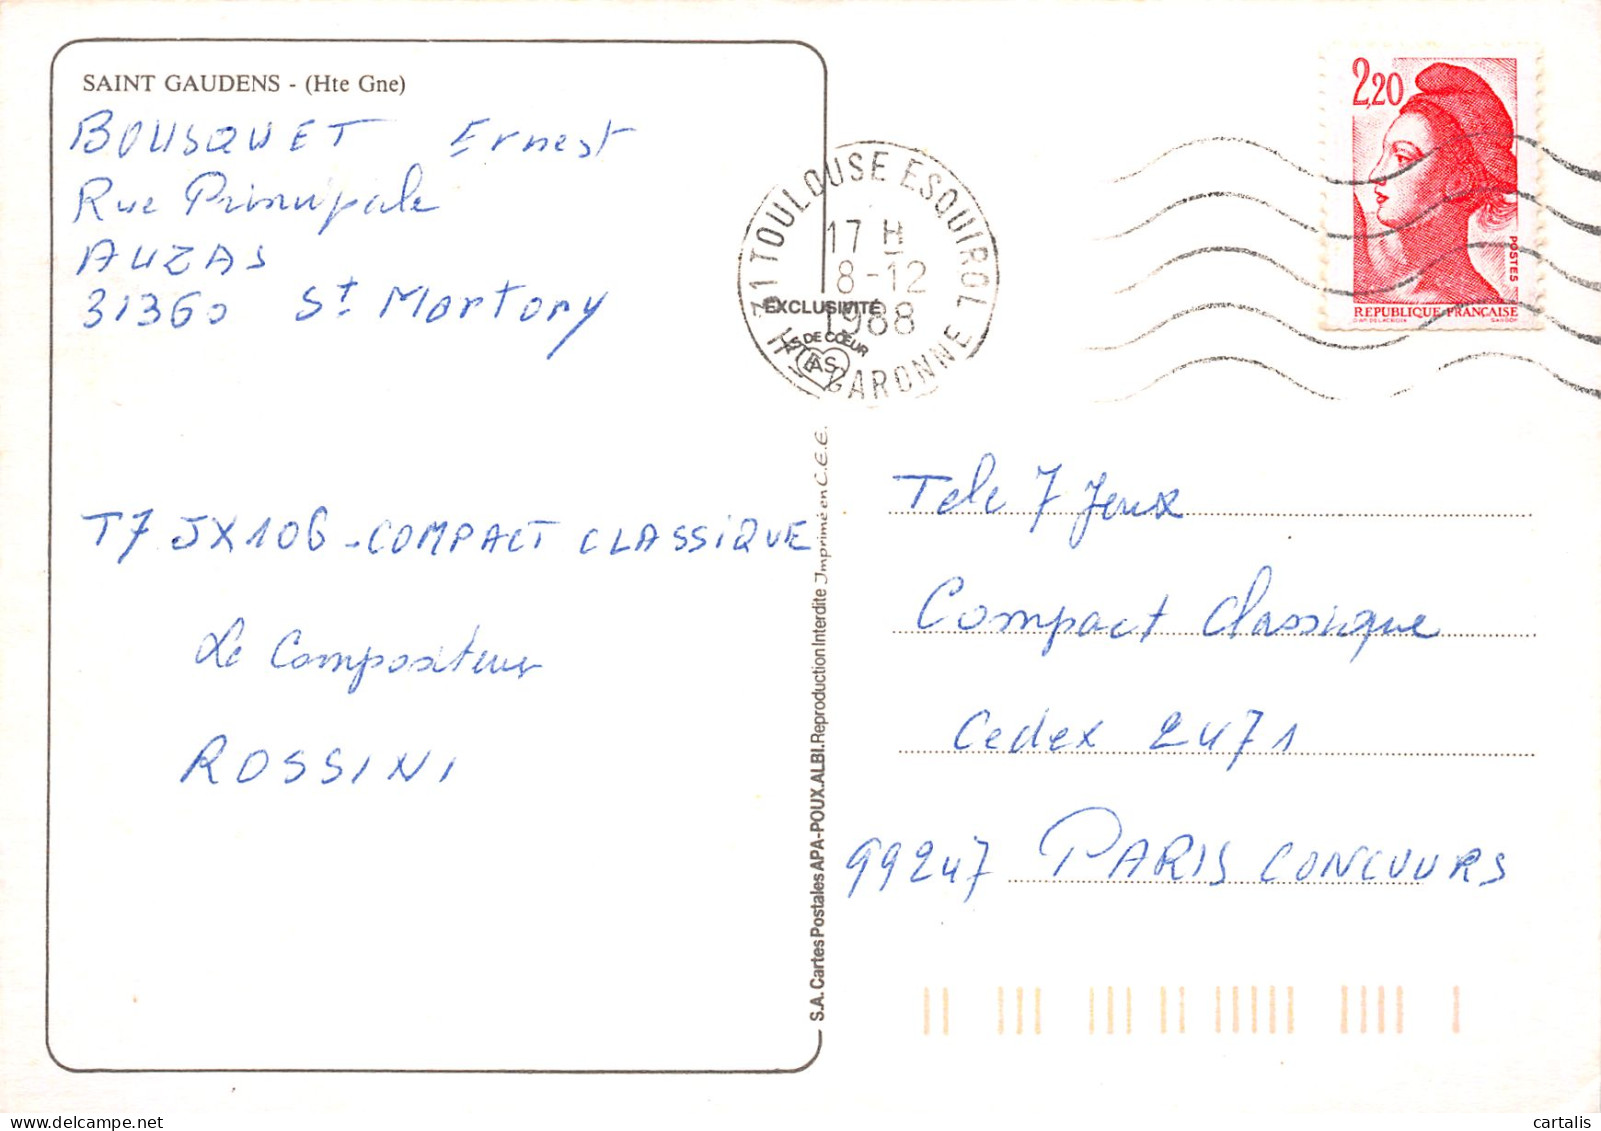 SAINT GAUDENS - (Hte Gne)
BOUSQUET Ernest
Rue Principale
AUZAS
31360 St Martory
T7 JX106 - COMPACT CLASSIQUE
Le Compositeur
ROSSINI
S.A. Cartes Postales APA-POUX. ALBI. Reproduction Interdite Imprimé en C.E.E.
EXCLUSIVITÉ
DE CŒUR
AS
31 TOULOUSE ESQUIROL
17 H
8-12
1988
GARONNE
2,20
POSTES
REPUBLIQUE FRANÇAISE
Tele 7 Jeux
Compact Classique
Cedex 2471
99247 PARIS CONCOURS
delcampe.net
cartalis